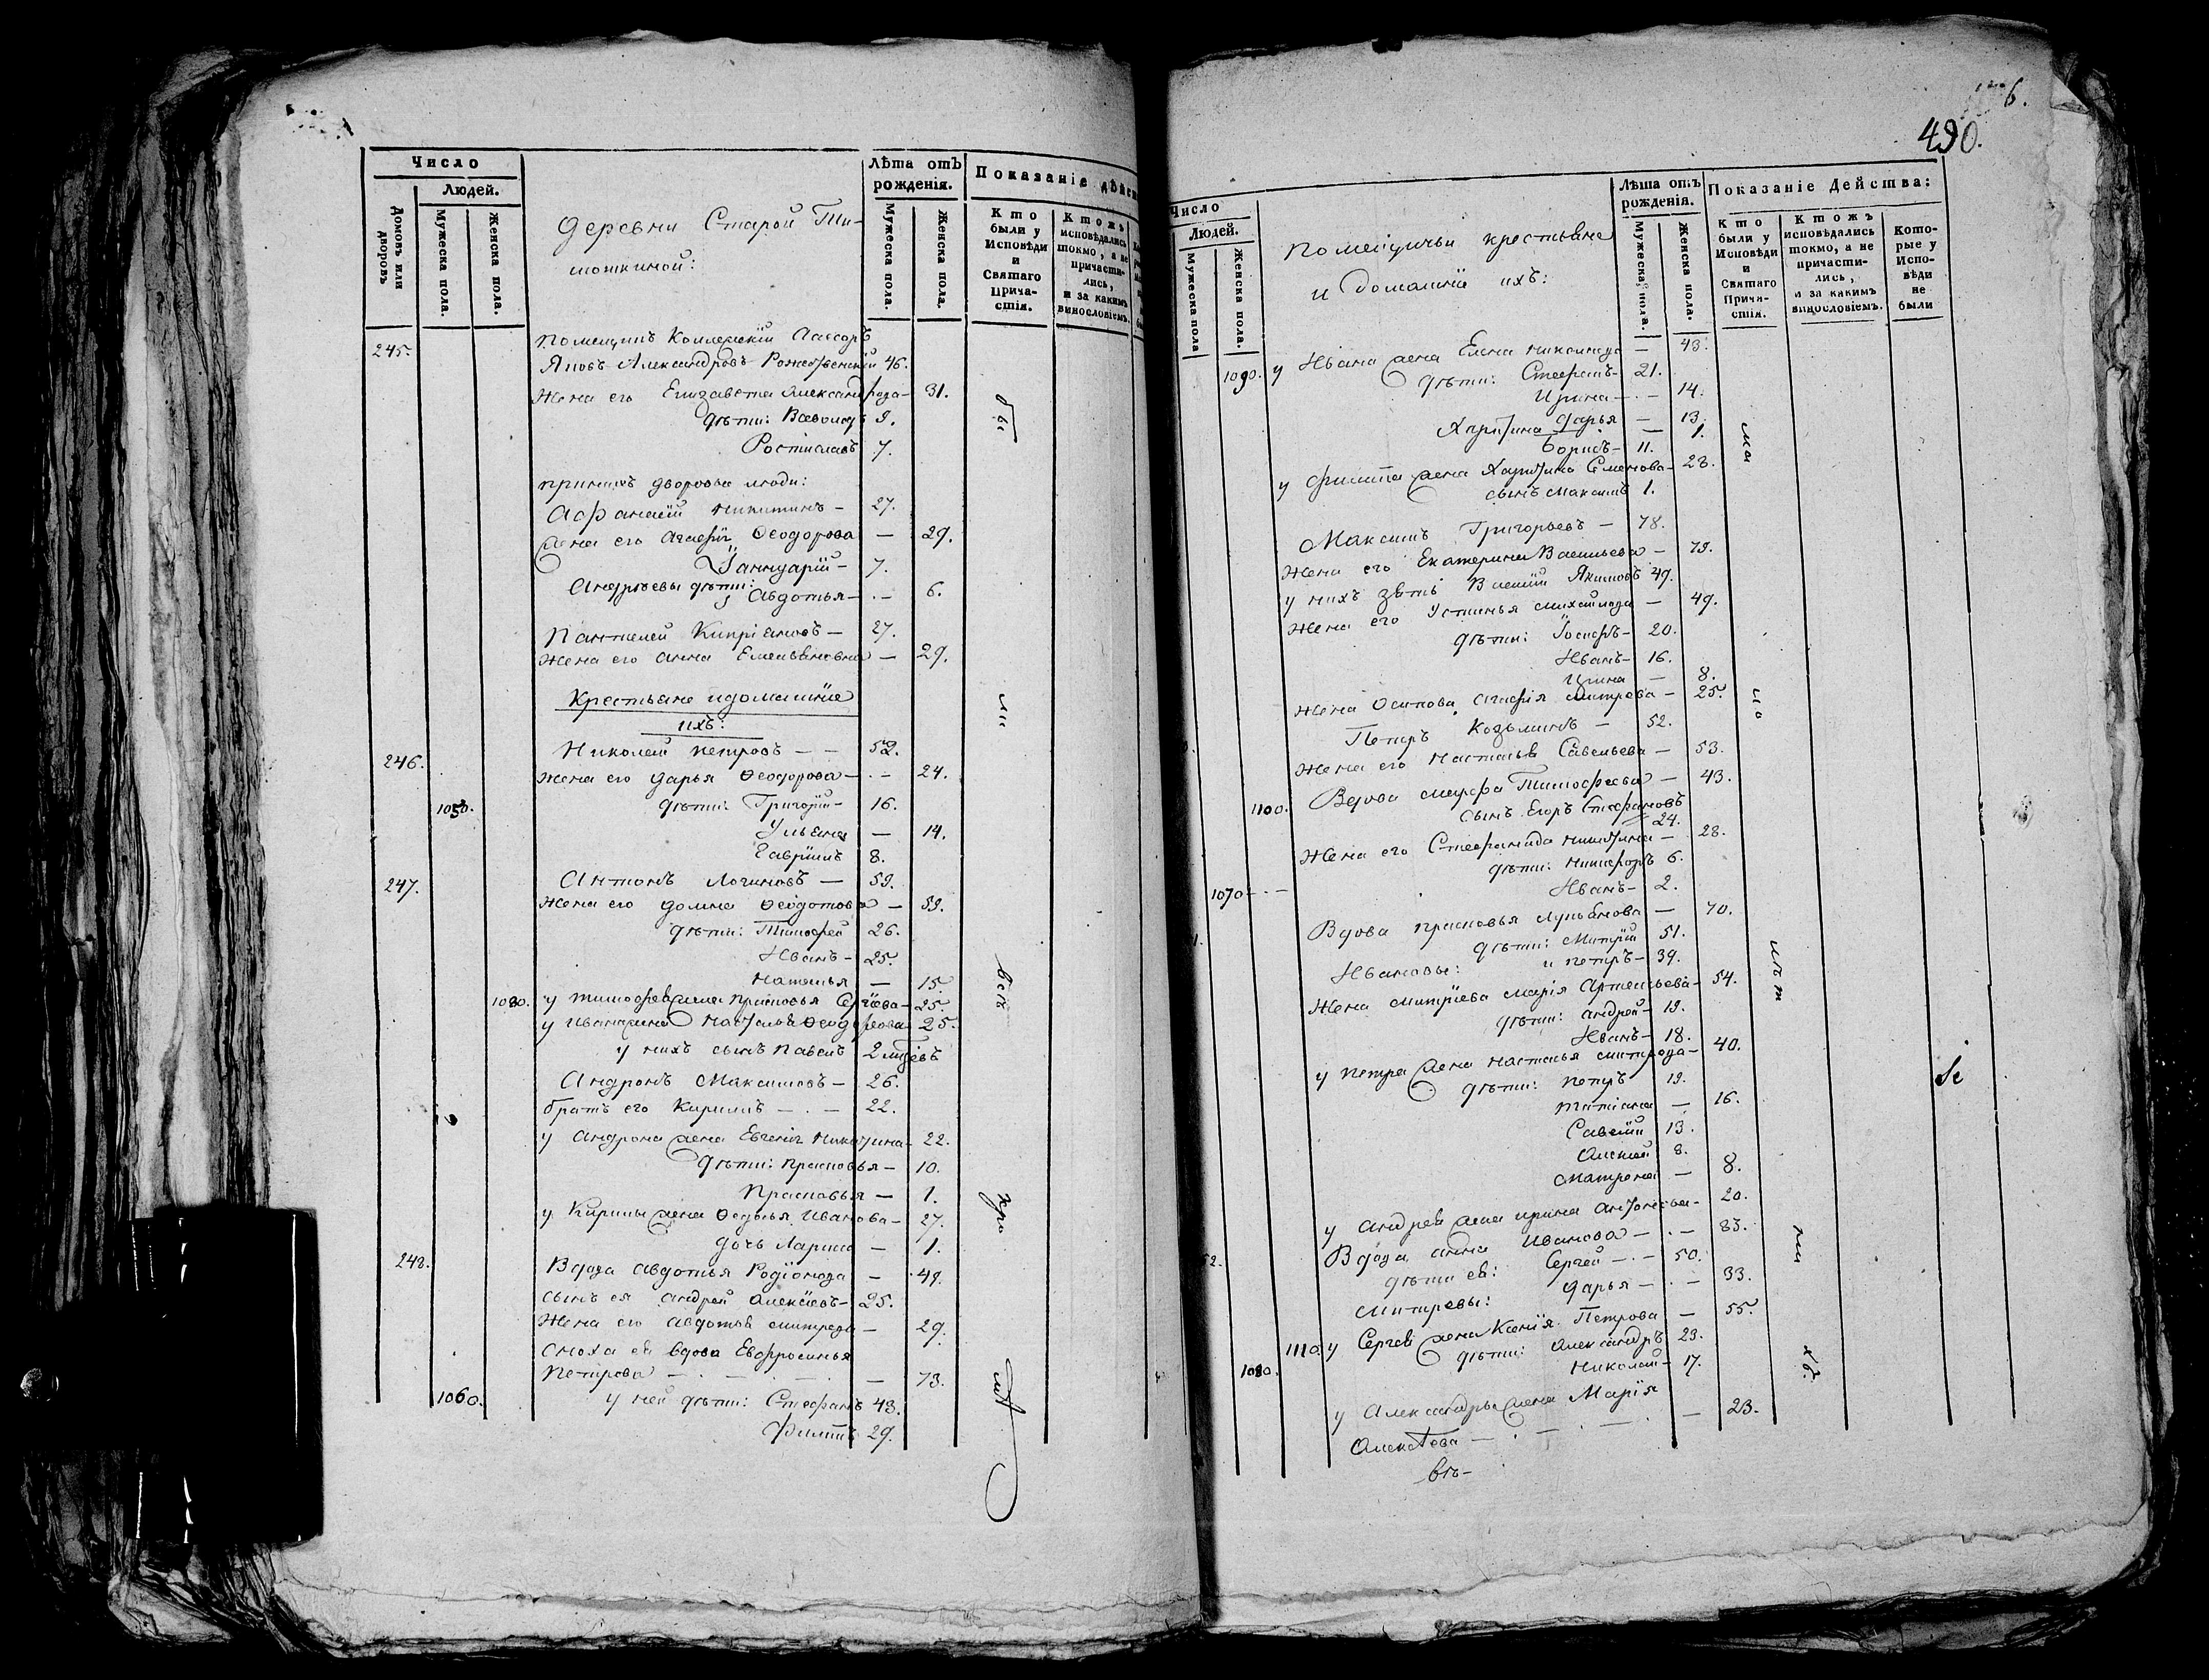 Число
Людей.
Домовъ или дворовъ
Мужеска пола.
Женска пола.
Деревни Старой Ти-
моткиной:
Лѣта отъ рожденія.
Мужеска пола.
Женска пола.
Показаніе дѣйс
Кто были у Исповѣди и Святаго Причастія.
Ктожъ исповѣдались токмо, а не причастились, и за какимъ винословіемъ.
Помещикъ Коллежскій Асессоръ
245. Яковъ Александровъ Рожественскій 46.
Жена его Елизавета Александрова — 31.
дѣти: Всеволодъ 9.
Ростиславъ 7.
при нихъ дворовые люди:
Афанасий Никитинъ — 27.
жена его Агафія Ѳеодорова — 29.
Іаннуарій — 7.
Андреевы дѣти:
Авдотья — 6.
Пантелей Кипріановъ — 27.
Жена его Анна Емельяновна — 29.
Крестьяне и домашніе
ихъ:
246. Николай Петровъ — 52.
Жена его Дарья Ѳеодорова — 24.
1050. дѣти: Григорій — 16.
Ульяна — 14.
Гавріилъ 8.
247. Антонъ Логиновъ — 59.
Жена его Домна Ѳеодотова — 59.
дѣти: Тимофей 26.
Иванъ — 25.
Наталья — 15.
1080. у Тимофея жена Прасковья Сергіева — 25.
у Ивана жена Настасья Ѳеодорова 25.
у нихъ сынъ Павелъ 2 мцевъ
Андронъ Максимовъ — 26.
братъ его Кирилъ — 22.
у Андрона жена Евгенія Никитина — 22.
дѣти: Прасковья — 10.
Прасковья — 1.
у Кирилы жена Ѳедосья Иванова — 27.
дочь Лариса — 1.
248. Вдова Авдотья Родіонова — 49.
сынъ ея Андрей Алексіевъ — 25.
Жена его Авдотья Митрева — 29.
сноха ея вдова Евфросинья
Петрова — 73.
1060. у ней дѣти: Стефанъ 43.
Филипъ 29.
бы
ли
всѣ
кро
мѣ
6.
490.
Число
Людей.
Мужеска пола
Женска пола.
Помещичьи крестьяне
и домашніи ихъ:
Лѣта отъ рожденія.
Мужеска пола.
Женска пола.
Показаніе Действа:
Кто были у Исповѣди и Святаго Причастія.
Ктожъ исповѣдались токмо, а не причастились, и за какимъ винословіемъ.
Которые у Исповѣди не были
у Ивана жена Елена Николаева — 43.
1090. дѣти: Стефанъ — 21.
Ирина — 14.
Дарья — 13.
Харитина — 1.
Борисъ — 11.
у Филипа жена Харитина Семенова — 28.
сынъ Максимъ 1.
Максимъ Григорьевъ — 78.
Жена его Екатерина Васильева — 79.
у нихъ зять Василій Якимовъ 49.
Жена его Устинья Михайлова — 49.
дѣти: Іосифъ — 20.
Иванъ — 16.
Ирина — 8.
Жена Осипова Агафія Митрева — 25.
Петръ Козьминъ — 52.
Жена его Настасья Савельева — 53.
1100. Вдова Марфа Тимофеева — 43.
сынъ Егоръ Стефановъ
24.
Жена его Стефанида Никитина — 28.
дѣти: Никифоръ 6.
1070 — Иванъ — 2.
Вдова Прасковья Лукьянова — 70.
дѣти: Митрій 51.
Ивановы: и Петръ — 39.
Жена Митріева Марія Артемьева — 54.
дѣти: Андрей — 19.
Иванъ — 18.
у Петра жена Настасья Митрова — 40.
дѣти: Петръ 19.
Татіана — 16.
Савелій 13.
Алексей 8.
Матрена — 8.
у Андрея жена Ирина Антоньева — 20.
Вдова Анна Иванова — 83.
дѣти ея: Сергей — 50.
Митревы: Дарья — 33.
1110. у Сергея жена Ксенія Петрова — 55.
дѣти: Александръ 23.
1080. Николай — 17.
у Александры жена Марія
Алексѣева — 23.
въ —
ма
ло
лѣт
ни
хъ.